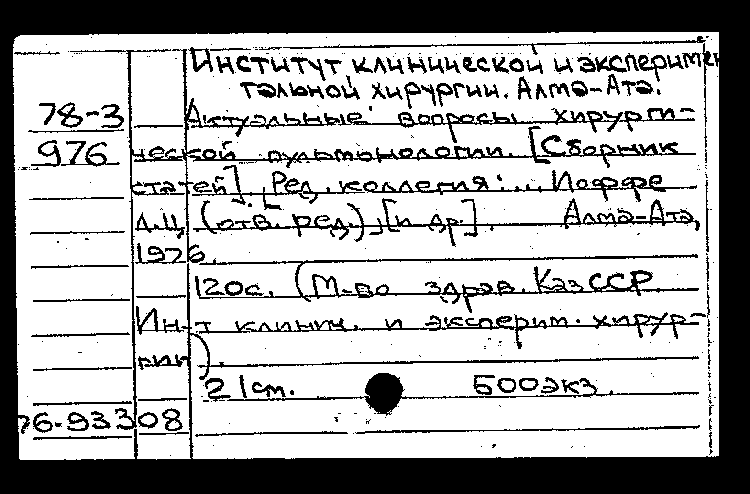 Институт клинической и эксперимен
тальной хирургии. Алма-Ата.
78-3 Актуальные вопросы хирурги-
976 ческой пульмонологии. [Сборник
статей]. [Ред. коллегия: ... Иоффе
Л.Ц. (отв. ред.), [и др.]. Алма-Ата,
1976.
120с. (М-во здрав. КазССР
Ин-т клинич. и эксперим. хирур-
гии).
21см. 500экз.
76-93308